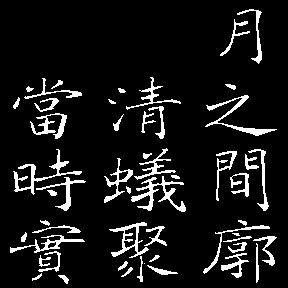 月之間廓
清蟻聚
當時實